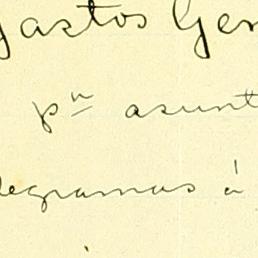 Gastos Gen
pn asunt
legramas á